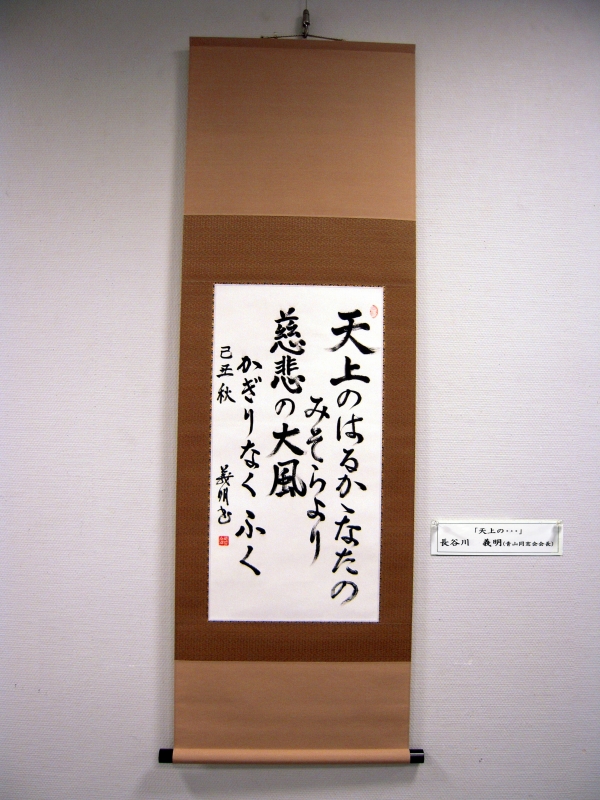 天上のはるかゝなたの
みそらより
慈悲の大風
かぎりなくふく
己丑秋
義明書
「天上の・・・」
長谷川 義明(青山同窓会会長)